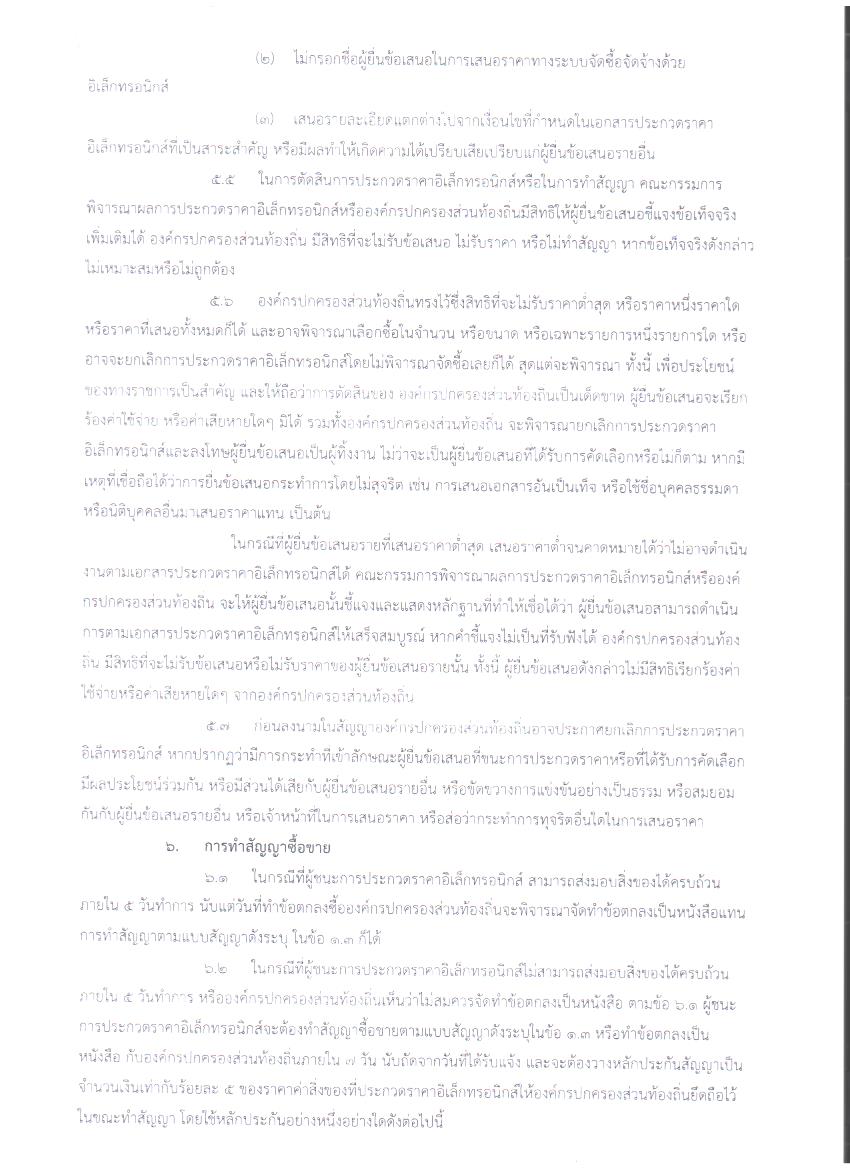 (๒) ไม่กรอกชื่อผู้ยื่นข้อเสนอในการเสนอราคาทางระบบจัดซื้อจัดจ้างด้วย
อิเล็กทรอนิกส์
(๓) เสนอรายละเอียดแตกต่างไปจากเงื่อนไขที่กำหนดในเอกสารประกวดราคา
อิเล็กทรอนิกส์ที่เป็นสาระสำคัญ หรือมีผลทำให้เกิดความได้เปรียบเสียเปรียบแก่ผู้ยื่นข้อเสนอรายอื่น
๕.๕ ในการตัดสินการประกวดราคาอิเล็กทรอนิกส์หรือในการทำสัญญา คณะกรรมการ
พิจารณาผลการประกวดราคาอิเล็กทรอนิกส์หรือองค์กรปกครองส่วนท้องถิ่นมีสิทธิให้ผู้ยื่นข้อเสนอชี้แจงข้อเท็จจริง
เพิ่มเติมได้ องค์กรปกครองส่วนท้องถิ่น มีสิทธิที่จะไม่รับข้อเสนอ ไม่รับราคา หรือไม่ทำสัญญา หากข้อเท็จจริงดังกล่าว
ไม่เหมาะสมหรือไม่ถูกต้อง
๕.๖ องค์กรปกครองส่วนท้องถิ่นทรงไว้ซึ่งสิทธิที่จะไม่รับราคาต่ำสุด หรือราคาหนึ่งราคาใด
หรือราคาที่เสนอทั้งหมดก็ได้ และอาจพิจารณาเลือกซื้อในจำนวน หรือขนาด หรือเฉพาะรายการหนึ่งรายการใด หรือ
อาจจะยกเลิกการประกวดราคาอิเล็กทรอนิกส์โดยไม่พิจารณาจัดซื้อเลยก็ได้ สุดแต่จะพิจารณา ทั้งนี้ เพื่อประโยชน์
ของทางราชการเป็นสำคัญ และให้ถือว่าการตัดสินของ องค์กรปกครองส่วนท้องถิ่นเป็นเด็ดขาด ผู้ยื่นข้อเสนอจะเรียก
ร้องค่าใช้จ่าย หรือค่าเสียหายใดๆ มิได้ รวมทั้งองค์กรปกครองส่วนท้องถิ่น จะพิจารณายกเลิกการประกวดราคา
อิเล็กทรอนิกส์และลงโทษผู้ยื่นข้อเสนอเป็นผู้ทิ้งงาน ไม่ว่าจะเป็นผู้ยื่นข้อเสนอที่ได้รับการคัดเลือกหรือไม่ก็ตาม หากมี
เหตุที่เชื่อถือได้ว่าการยื่นข้อเสนอกระทำการโดยไม่สุจริต เช่น การเสนอเอกสารอันเป็นเท็จ หรือใช้ชื่อบุคคลธรรมดา
หรือนิติบุคคลอื่นมาเสนอราคาแทน เป็นต้น
ในกรณีที่ผู้ยื่นข้อเสนอรายที่เสนอราคาต่ำสุด เสนอราคาต่ำจนคาดหมายได้ว่าไม่อาจดำเนิน
งานตามเอกสารประกวดราคาอิเล็กทรอนิกส์ได้ คณะกรรมการพิจารณาผลการประกวดราคาอิเล็กทรอนิกส์หรือองค์
กรปกครองส่วนท้องถิ่น จะให้ผู้ยื่นข้อเสนอนั้นชี้แจงและแสดงหลักฐานที่ทำให้เชื่อได้ว่า ผู้ยื่นข้อเสนอสามารถดำเนิน
การตามเอกสารประกวดราคาอิเล็กทรอนิกส์ให้เสร็จสมบูรณ์ หากคำชี้แจงไม่เป็นที่รับฟังได้ องค์กรปกครองส่วนท้อง
ถิ่น มีสิทธิที่จะไม่รับข้อเสนอหรือไม่รับราคาของผู้ยื่นข้อเสนอรายนั้น ทั้งนี้ ผู้ยื่นข้อเสนอดังกล่าวไม่มีสิทธิเรียกร้องค่า
ใช้จ่ายหรือค่าเสียหายใดๆ จากองค์กรปกครองส่วนท้องถิ่น
๕.๗ ก่อนลงนามในสัญญาองค์กรปกครองส่วนท้องถิ่นอาจประกาศยกเลิกการประกวดราคา
อิเล็กทรอนิกส์ หากปรากฏว่ามีการกระทำที่เข้าลักษณะผู้ยื่นข้อเสนอที่ชนะการประกวดราคาหรือที่ได้รับการคัดเลือก
มีผลประโยชน์ร่วมกัน หรือมีส่วนได้เสียกับผู้ยื่นข้อเสนอรายอื่น หรือขัดขวางการแข่งขันอย่างเป็นธรรม หรือสมยอม
กันกับผู้ยื่นข้อเสนอรายอื่น หรือเจ้าหน้าที่ในการเสนอราคา หรือส่อว่ากระทำการทุจริตอื่นใดในการเสนอราคา
๖. การทำสัญญาซื้อขาย
๖.๑ ในกรณีที่ผู้ชนะการประกวดราคาอิเล็กทรอนิกส์ สามารถส่งมอบสิ่งของได้ครบถ้วน
ภายใน ๕ วันทำการ นับแต่วันที่ทำข้อตกลงซื้อองค์กรปกครองส่วนท้องถิ่นจะพิจารณาจัดทำข้อตกลงเป็นหนังสือแทน
การทำสัญญาตามแบบสัญญาดังระบุ ในข้อ ๑.๓ ก็ได้
๖.๒ ในกรณีที่ผู้ชนะการประกวดราคาอิเล็กทรอนิกส์ไม่สามารถส่งมอบสิ่งของได้ครบถ้วน
ภายใน ๕ วันทำการ หรือองค์กรปกครองส่วนท้องถิ่นเห็นว่าไม่สมควรจัดทำข้อตกลงเป็นหนังสือ ตามข้อ ๖.๑ ผู้ชนะ
การประกวดราคาอิเล็กทรอนิกส์จะต้องทำสัญญาซื้อขายตามแบบสัญญาดังระบุในข้อ ๑.๓ หรือทำข้อตกลงเป็น
หนังสือ กับองค์กรปกครองส่วนท้องถิ่นภายใน ๗ วัน นับถัดจากวันที่ได้รับแจ้ง และจะต้องวางหลักประกันสัญญาเป็น
จำนวนเงินเท่ากับร้อยละ ๕ ของราคาค่าสิ่งของที่ประกวดราคาอิเล็กทรอนิกส์ให้องค์กรปกครองส่วนท้องถิ่นยึดถือไว้
ในขณะทำสัญญา โดยใช้หลักประกันอย่างหนึ่งอย่างใดดังต่อไปนี้